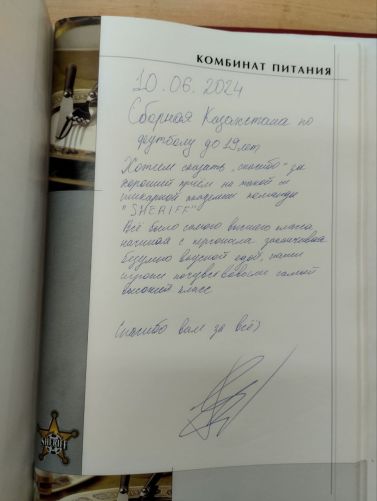 КОМБИНАТ ПИТАНИЯ
10.06.2024
Сборная Казахстана по
футболу до 19 лет,
Хотим сказать „спасибо" за
хороший приём на такой
шикарной академии команды
"SHERIFF"
Всё было самого высшего класса,
начиная с персонала, заканчивая
безумно вкусной едой, наши
игроки почувствовали самый
высокий класс
Спасибо вам за всё)
SHERIFF